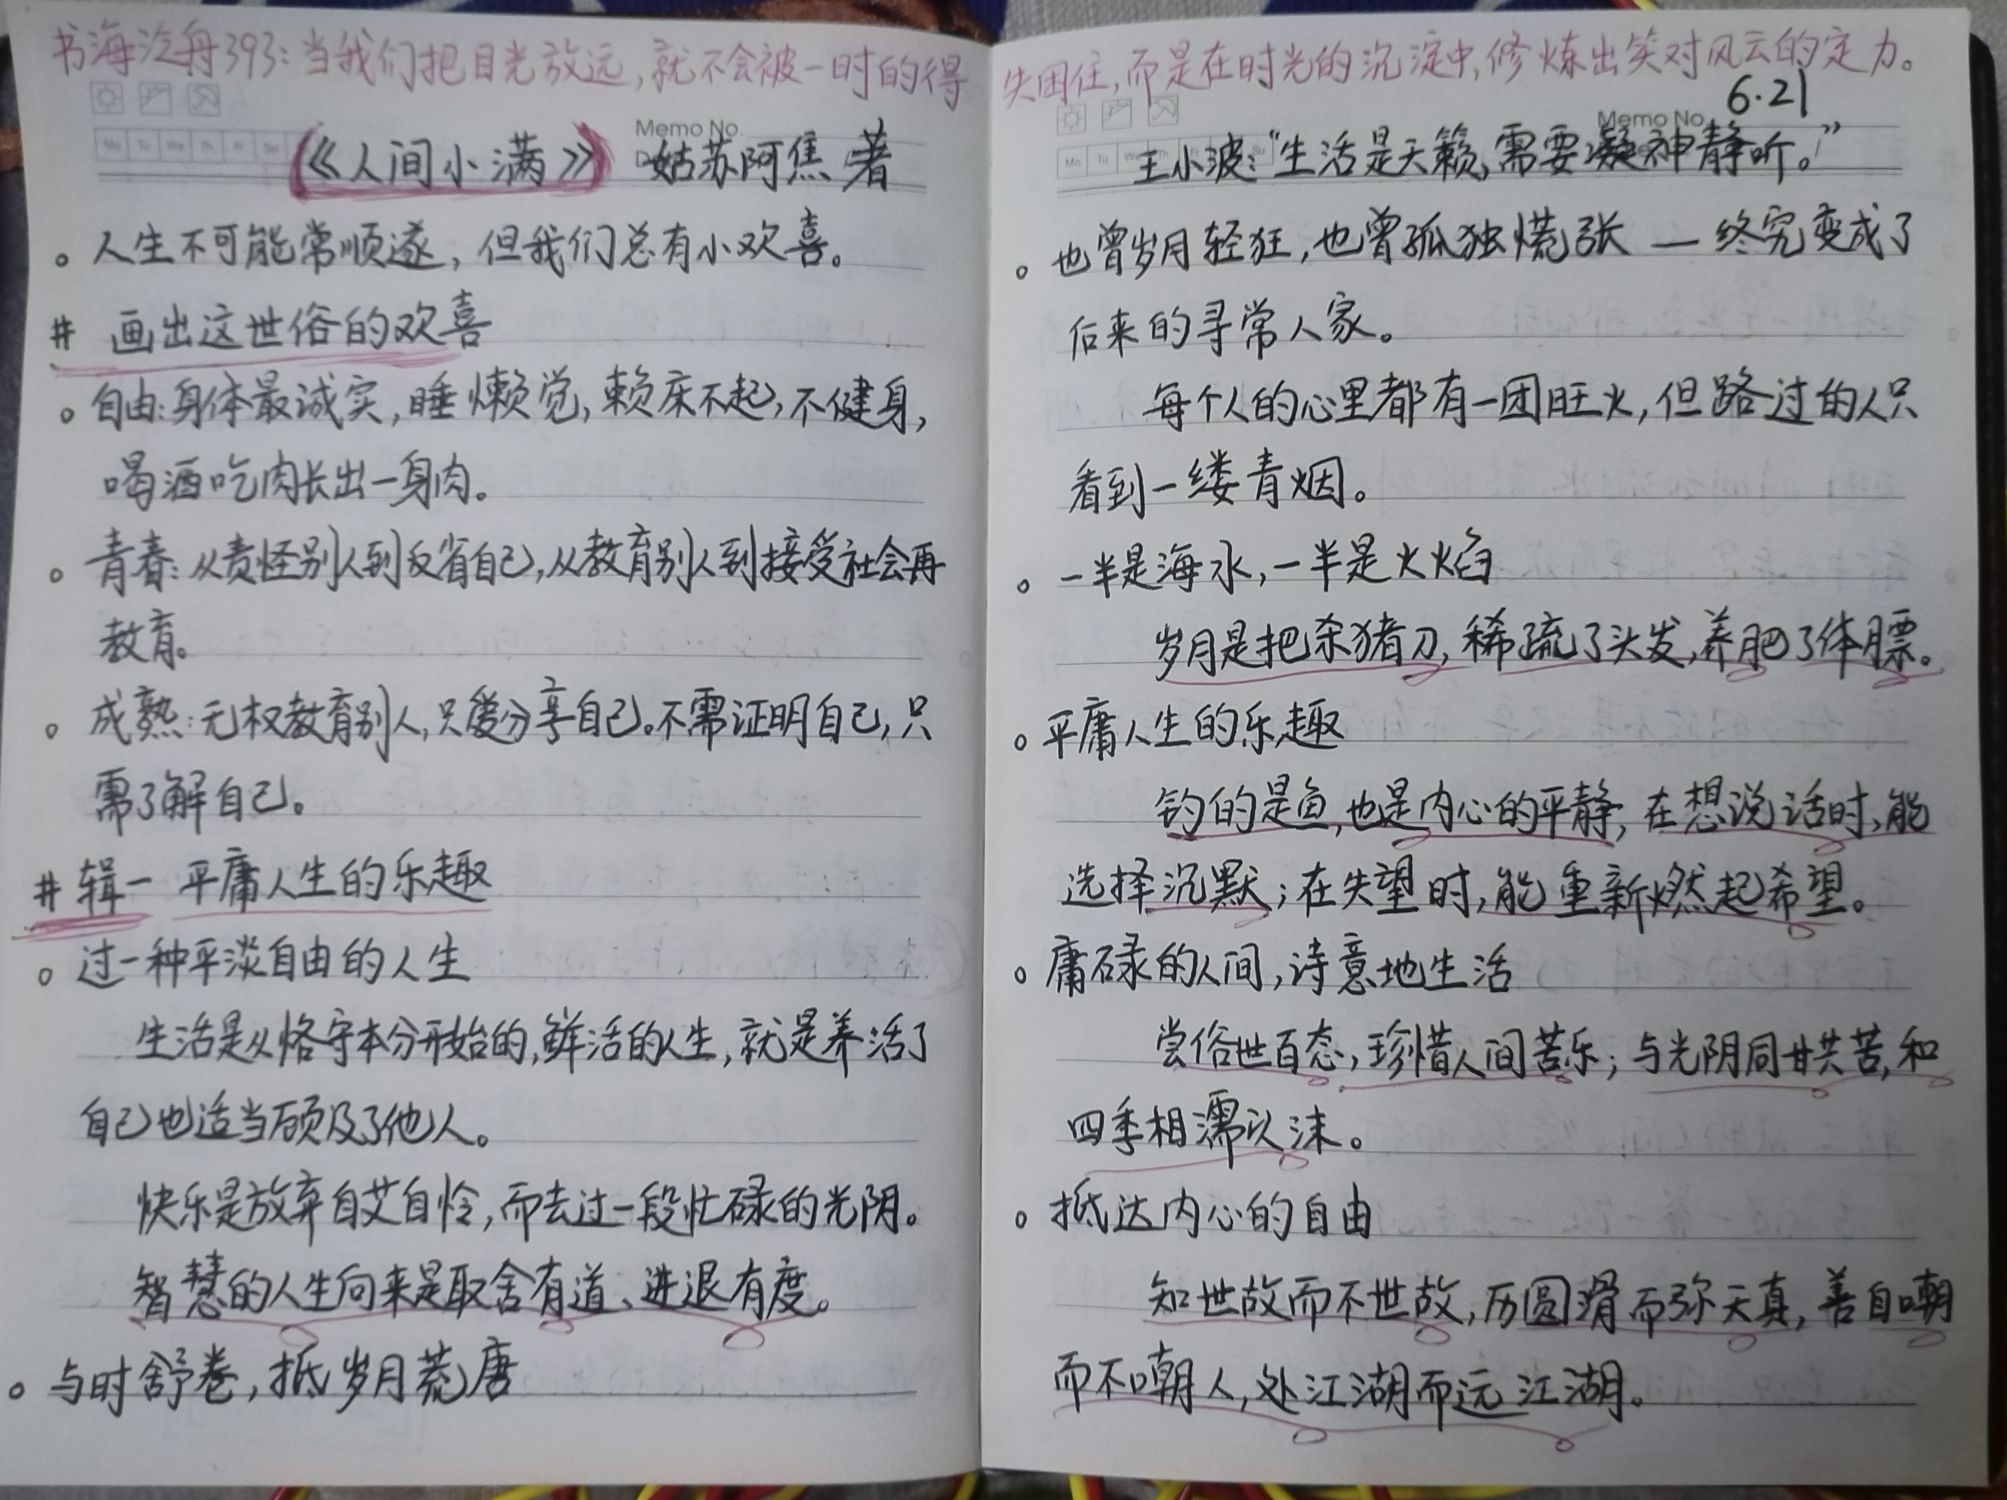 书海泛舟393:当我们把目光放远,就不会被一时的得
《人间小满》 姑苏阿焦 著
Memo No.
Mo Tu We Th Fr Sa
。人生不可能常顺遂,但我们总有小欢喜。
# 画出这世俗的欢喜
。自由:身体最诚实,睡懒觉,赖床不起,不健身,
喝酒吃肉长出一身肉。
。青春:从责怪别人到反省自己,从教育别人到接受社会再
教育。
。成熟:无权教育别人,只爱分享自己。不需证明自己,只
需了解自己。
# 辑一 平庸人生的乐趣
。过一种平淡自由的人生
生活是从恪守本分开始的,鲜活的人生,就是养活了
自己也适当顾及了他人。
快乐是放弃自艾自怜,而去过一段忙碌的光阴。
智慧的人生向来是取舍有道、进退有度。
。与时舒卷,抵岁月荒唐
失困住,而是在时光的沉淀中,修炼出笑对风云的定力。
6.21
Memo No.
Mo Tu We Su
王小波:“生活是天籁,需要凝神静听。”
。也曾岁月轻狂,也曾孤独慌张 — 终究变成了
后来的寻常人家。
每个人的心里都有一团旺火,但路过的人只
看到一缕青烟。
。一半是海水,一半是火焰
岁月是把杀猪刀,稀疏了头发,养肥了体膘。
。平庸人生的乐趣
钓的是鱼,也是内心的平静,在想说话时,能
选择沉默;在失望时,能重新燃起希望。
。庸碌的人间,诗意地生活
尝俗世百态,珍惜人间苦乐;与光阴同甘共苦,和
四季相濡以沫。
。抵达内心的自由
知世故而不世故,历圆滑而弥天真,善自嘲
而不嘲人,处江湖而远江湖。